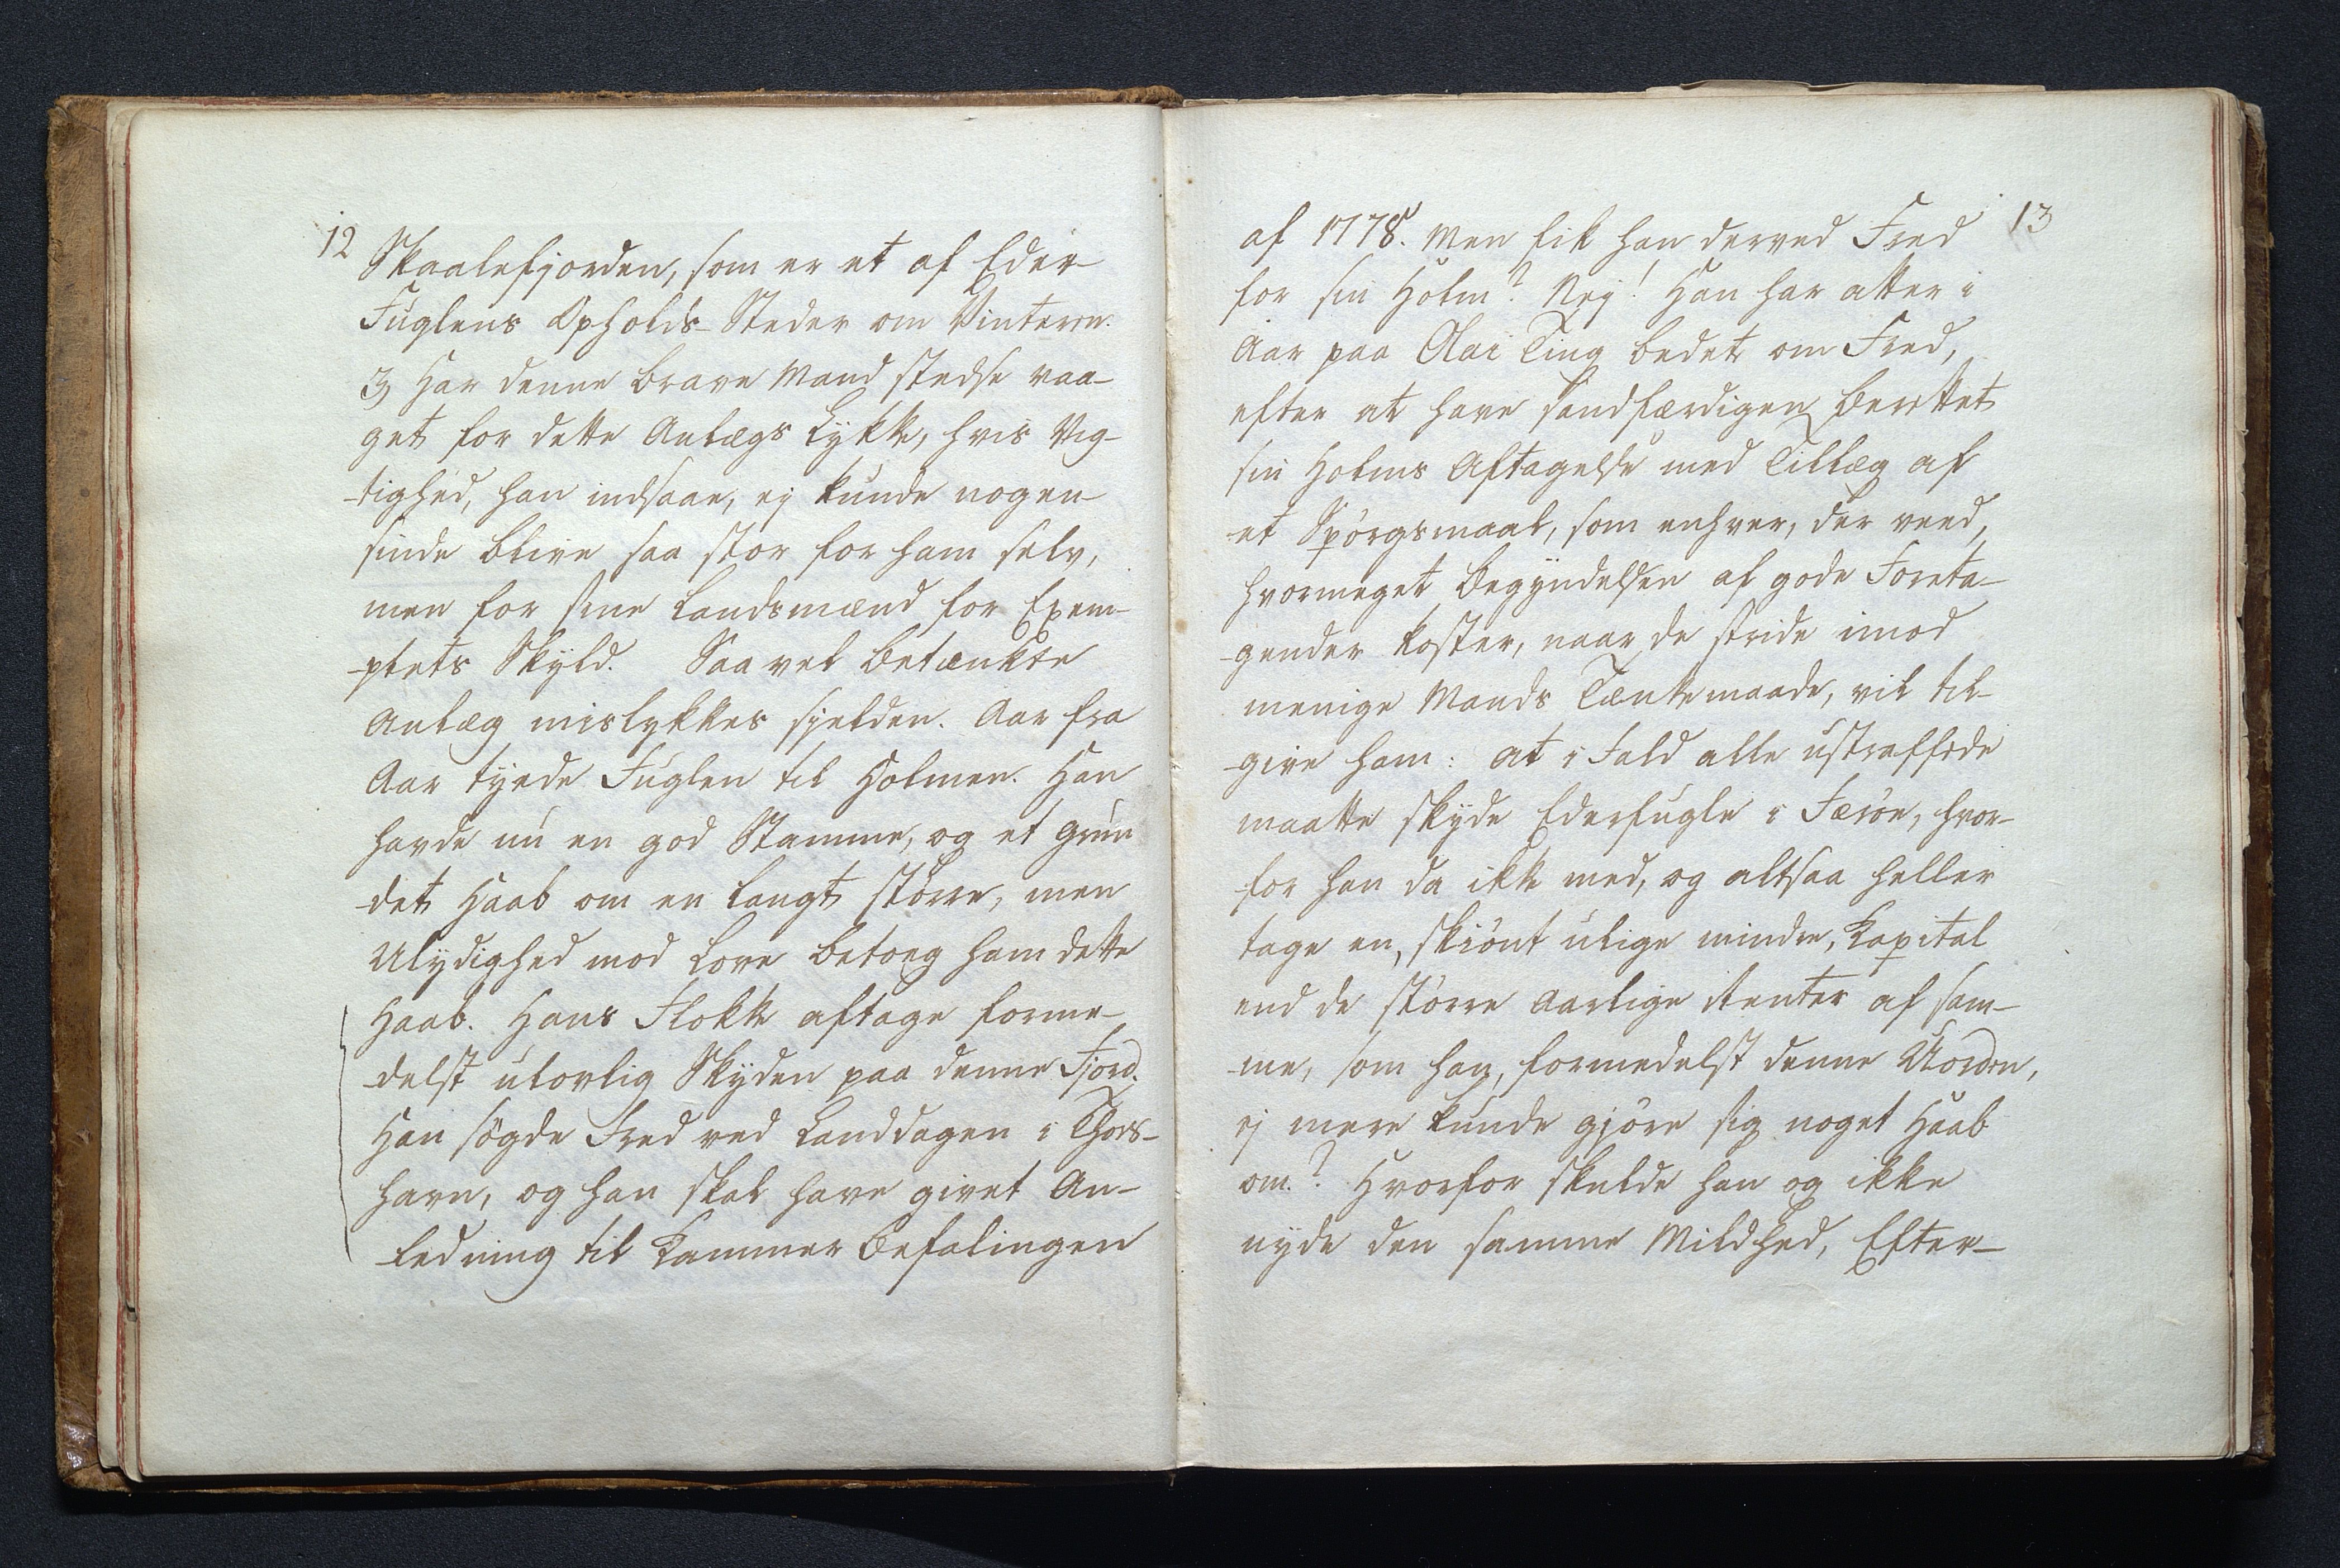 12
Skaalefjorden, som er et af Eder-
Fuglens Opholds-Steder om Vinteren.
3) Har denne brave Mand stedse vaa-
get for dette Anlægs Lykke, hvis Vig-
tighed, han indsaae, ej kunde nogen-
sinde blive saa stor for ham selv,
men for sine Landsmænd for Exem-
plets Skyld. Saa vel betænkte
Anlæg mislykkes sielden. Aar fra
Aar tyede Fuglen til Holmen. Han
havde nu en god Stamme, og et grun
det Haab om en langt större, men
Ulydighed mod Love betog ham dette
Haab. Hans Flokke aftage forme-
delst ulovlig Skyden paa denne Fjord.
Han sögde Fred ved Landdagen i Thors-
havn, og han skal have givet An-
ledning til Kammer Befalingen
13
af 1778. Men fik han derved Fred
for sin Holm? Nej! Han har atter i
Aar paa Olai Ting bedet om Fred,
efter at have sandfærdigen berettet
sin Holms Aftagelse med Tillæg af
et Spörgsmaal, som enhver, der veed,
hvormeget Begyndelsen af gode Foreta-
gender koster, naar de stride imod
menige Mands Tænkemaade, vil til-
give ham: at i Fald alle ustraffede
maatte skyde Ederfugle i Færöe, hvor-
for han da ikke med, og altsaa heller
tage en, skiönt ulige mindre, Kapital
end de större aarlige Renter af sam-
me, som han, formedelst denne Uorden,
ej mere kunde gjöre sig noget Haab
om? Hvorfor skulde han og ikke
nyde den samme Mildhed, Efter-